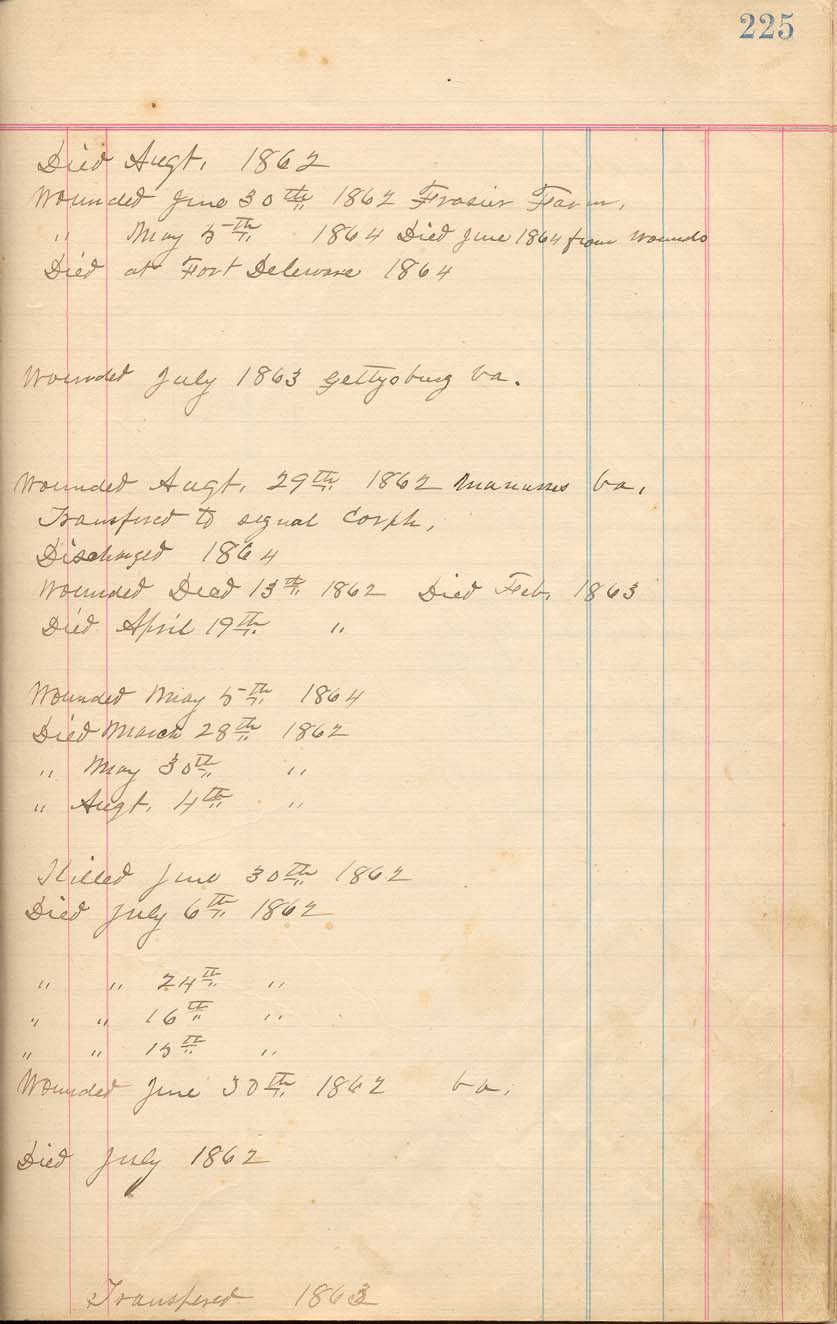 225
Died Augt. 1862
Wounded June 30th 1862 Frasier Farm.
" May 5th 1864 Died June 1864 from wounds
Died at Fort Deleware 1864
Wounded July 1863 Gettysburg Va.
Wounded Augt. 29th 1862 Manasses Va.
Transfered to signal Corph.
Discharged 1864
Wounded Decd 13th 1862 Died Feb. 1863
Died April 19th "
Wounded May 5th 1864
Died March 28th 1862
" May 30th "
" Augt. 4th "
Killed June 30th 1862
Died July 6th 1862
" " 24th "
" " 16th "
" " 15th "
Wounded June 30th 1862 Va.
Died July 1862
Transfered 1863